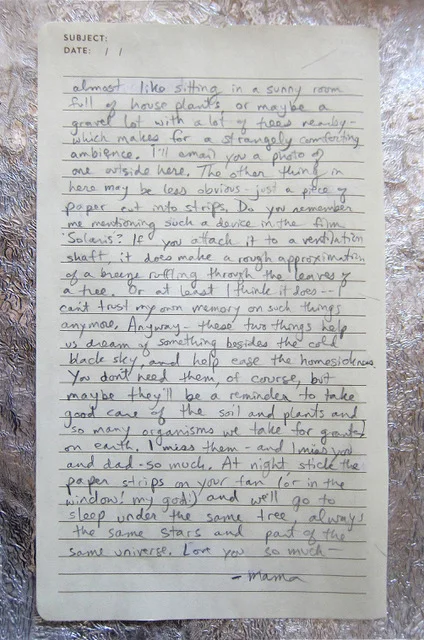 SUBJECT:
DATE: / /
almost like sitting in a sunny room
full of house plants or maybe a
gravel lot with a lot of trees nearby-
which makes for a strangely comforting
ambience. I'll email you a photo of
one outside here. The other thing in
here may be less obvious - just a piece of
paper cut into strips. Do you remember
me mentioning such a device in the film
'Solaris'? If you attach it to a ventilation
shaft, it does make a rough approximation
of a breeze ruffling through the leaves of
a tree. Or at least I think it does -- I
can't trust my own memory on such things
anymore. Anyway - these two things help
us dream of something besides the cold
black sky, and help ease the homesickness.
You don't need them, of course, but
maybe they'll be a reminder to take
good care of the soil and plants and
so many organisms we take for granted
on earth. I miss them - and I miss you
and dad - so much. At night stick the
paper strips on your fan (or in the
window! my god!) and we'll go to
sleep under the same tree, always
the same stars and part of the
same universe. Love you so much -
- Mama